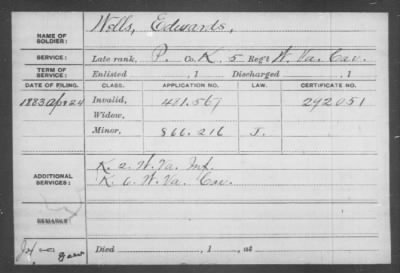 Wells, Edwards,
NAME OF
SOLDIER:
SERVICE: Late rank, P. Co. K. 5 Reg't W. Va. Cav.
TERM OF
SERVICE: Enlisted , 1 Discharged , 1
DATE OF FILING. CLASS. APPLICATION NO. LAW. CERTIFICATE NO.
1883 Apr 24 Invalid, 481.567 292051
Widow,
Minor, 866.216 J.
ADDITIONAL
SERVICES: K. 2. W. Va. Inf.
K. 6. W. Va. Cav.
REMARKS:
Died , 1 , at